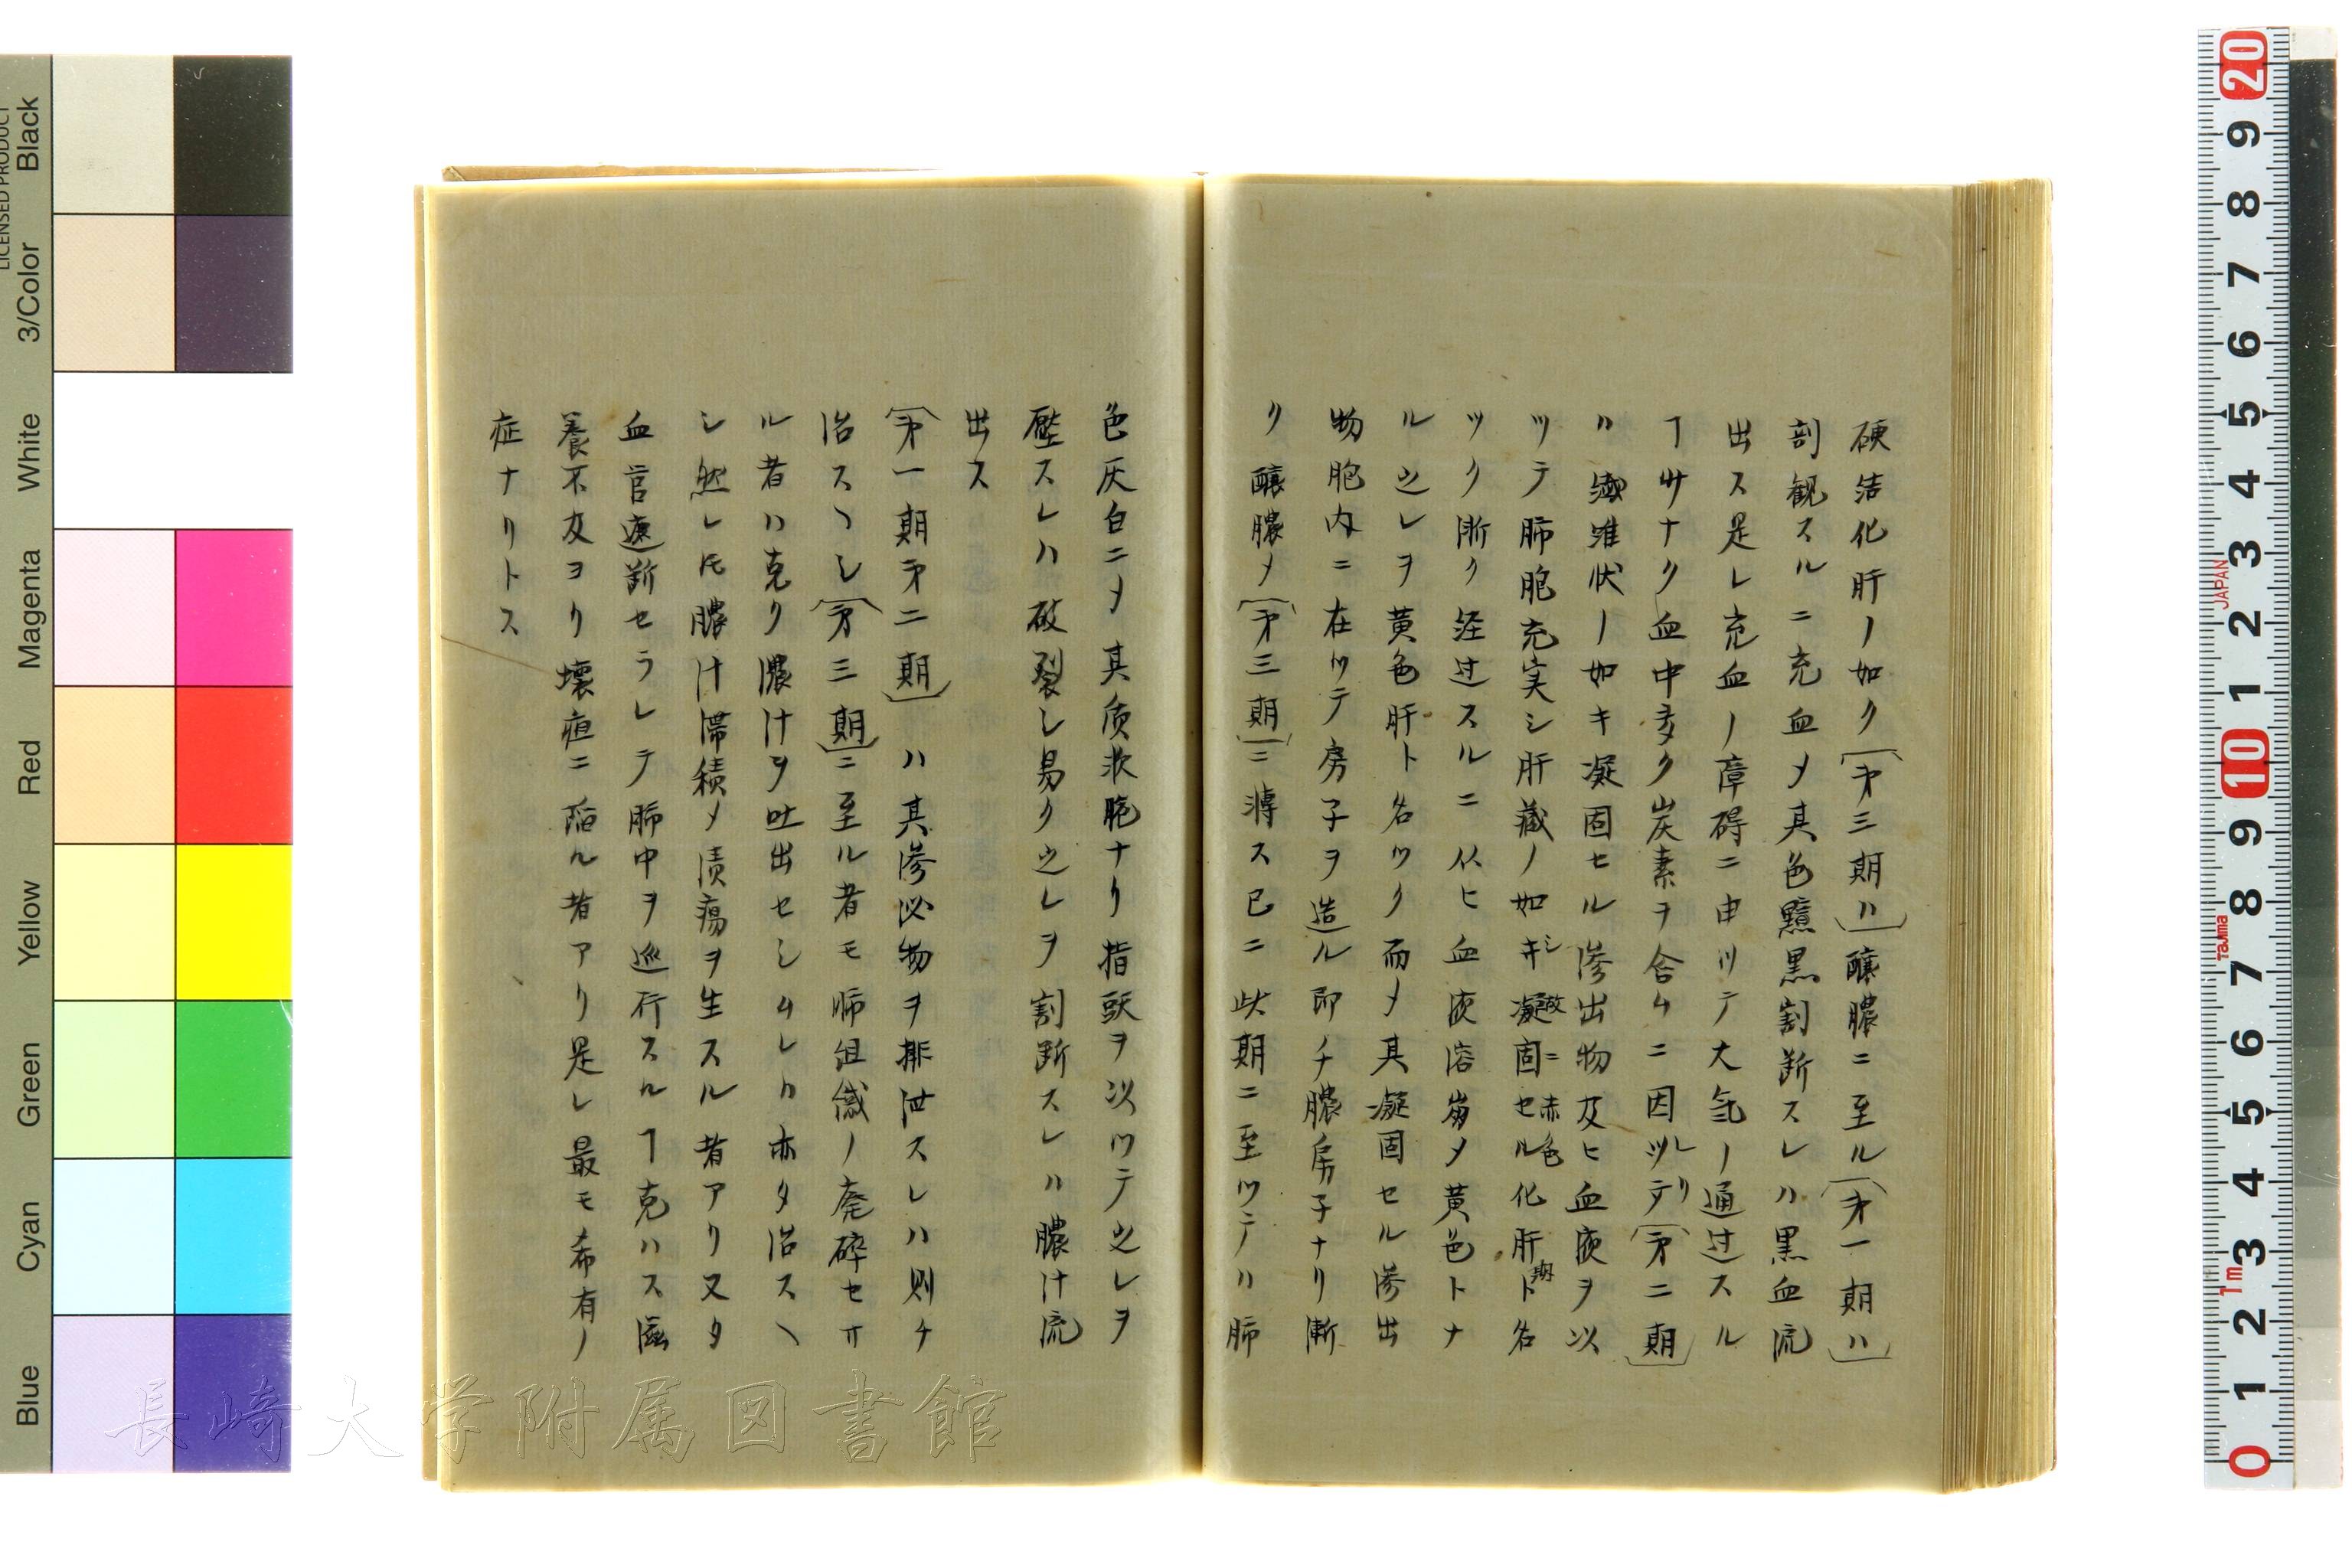 硬結化肝ノ如ク(第三期ハ)醸膿ニ至ル(第一期ハ)
剖観スルニ充血メ其色黯黒割断スレハ黒血流
出ス是レ充血ノ障碍ニ由ツテ大気ノ通过スル
ヿ少ナク血中多ク炭素ヲ含ムニ因レリ(第二期)
ハ繊維状ノ如キ凝固セル滲出物及ヒ血液ヲ以
ツテ肺胞充実シ肝蔵ノ如シ故ニ赤色化肝期ト名
ツク漸ク経过スルニ从ヒ血液溶崩メ黄色トナ
ル之レヲ黄色肝ト名ツク而メ其凝固セル滲出
物胞内ニ在ツテ房子ヲ造ル即チ膿房子ナリ漸
ク醸膿メ(第三期)ニ轉ス已ニ此期ニ至ツテハ肺
色灰白ニメ其质軟脆ナリ指頭ヲ以ツテ之レヲ
壓スレハ破裂シ易ク之レヲ割断スレハ膿汁流
出ス
(第一期第二期)ハ其滲泌物ヲ排泄スレハ則チ
治スヘシ(第三期)ニ至ル者モ肺組織ノ廃砕セサ
ル者ハ克ク膿汁ヲ吐出セシムレハ亦タ治スヘ
シ然レ𪜈膿汁滞積メ潰瘍ヲ生スル者アリ又タ
血官遮断セラレテ肺中ヲ巡行スルヿ克ハス滋
養不及ヨリ壊疽ニ陥ル者アリ是レ最モ希有ノ
症ナリトス
長崎大学附属図書館
LICENSED PRODUCT
Black
3/Color
White
Magenta
Red
Yellow
Green
Cyan
Blue
20
9
8
7
6
5
4
3
2
1
10
9
8
7
6
5
4
3
2
1
0
JAPAN
Tajima
1m